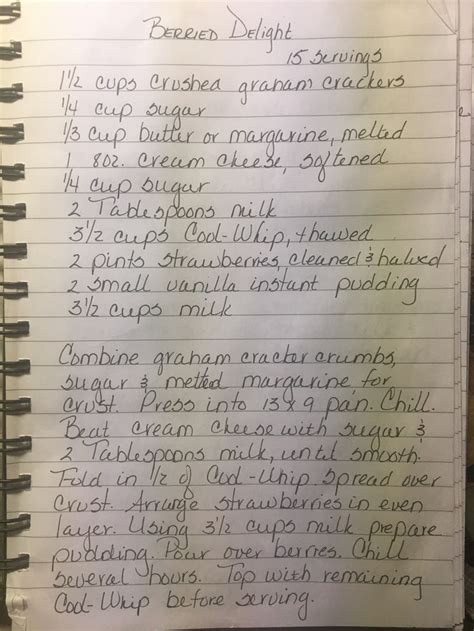 Berried Delight
15 servings
1 1/2 cups crushed graham crackers
1/4 cup sugar
1/3 cup butter or margarine, melted
1 8oz. cream cheese, softened
1/4 cup sugar
2 Tablespoons milk
3 1/2 cups Cool-Whip, thawed
2 pints strawberries, cleaned & halved
2 small vanilla instant pudding
3 1/2 cups milk
Combine graham cracker crumbs,
sugar & melted margarine for
crust. Press into 13 x 9 pan. Chill.
Beat cream cheese with sugar &
2 Tablespoons milk, until smooth.
Fold in 1/2 of Cool-Whip. Spread over
crust. Arrange strawberries in even
layer. Using 3 1/2 cups milk prepare
pudding. Pour over berries. Chill
several hours. Top with remaining
Cool-Whip before serving.